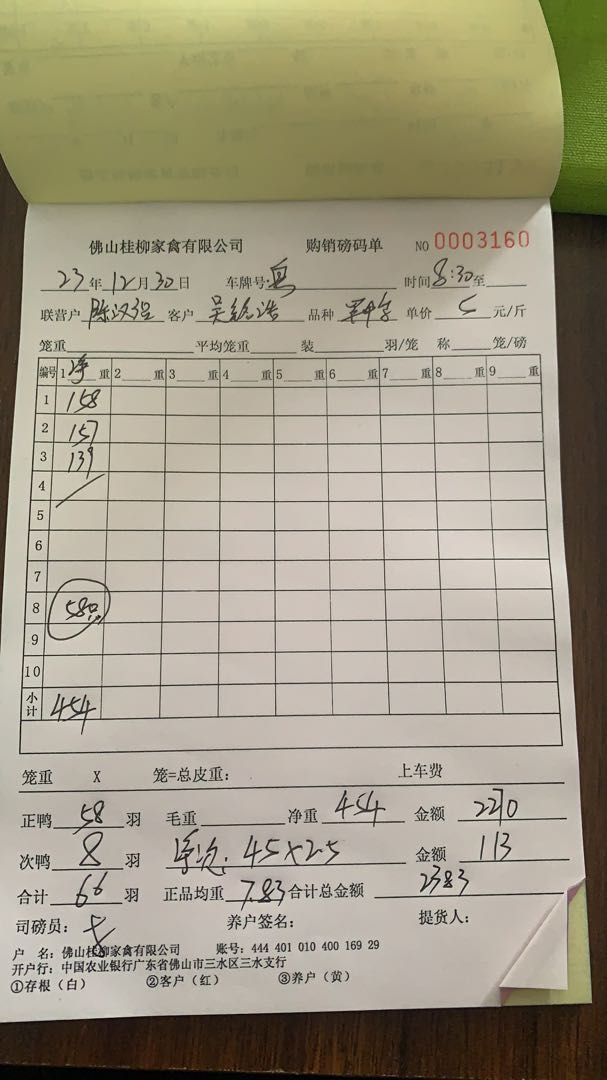 佛山桂柳家禽有限公司 购销磅码单 NO 0003160
23年12月30日 车牌号: 时间8:30至
联营户 陈汉强 客户 吴 浩 品种 单价 5 元/斤
笼重 平均笼重 装 羽/笼 称 笼/磅
编号 1 净 重 2 重 3 重 4 重 5 重 6 重 7 重 8 重 9 重
1 158
2 157
3 139
4
5
6
7
8 58只
9
10
小计 454
笼重 X 笼=总皮重: 上车费
正鸭 58 羽 毛重 净重 454 金额 2270
次鸭 8 羽 净次: 45×2.5 金额 113
合计 66 羽 正品均重 7.83 合计总金额 2383
司磅员: 养户签名: 提货人:
户 名: 佛山桂柳家禽有限公司 账号: 444 401 010 400 169 29
开户行: 中国农业银行广东省佛山市三水区三水支行
①存根(白) ②客户(红) ③养户(黄)